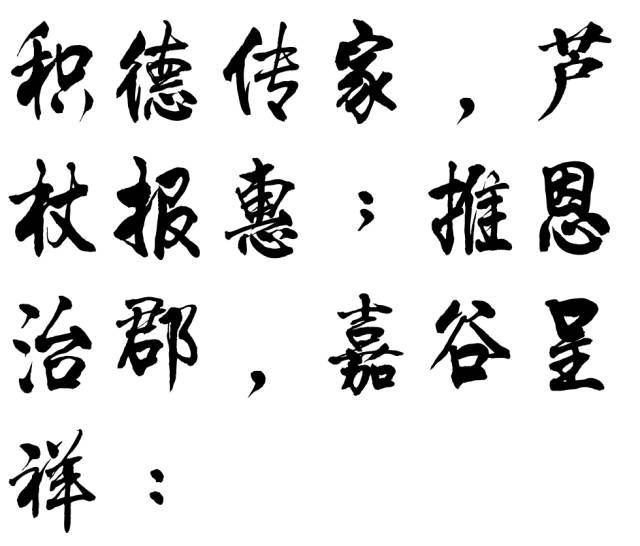 积德传家，芦
杖报惠；推恩
治郡，嘉谷呈
祥：